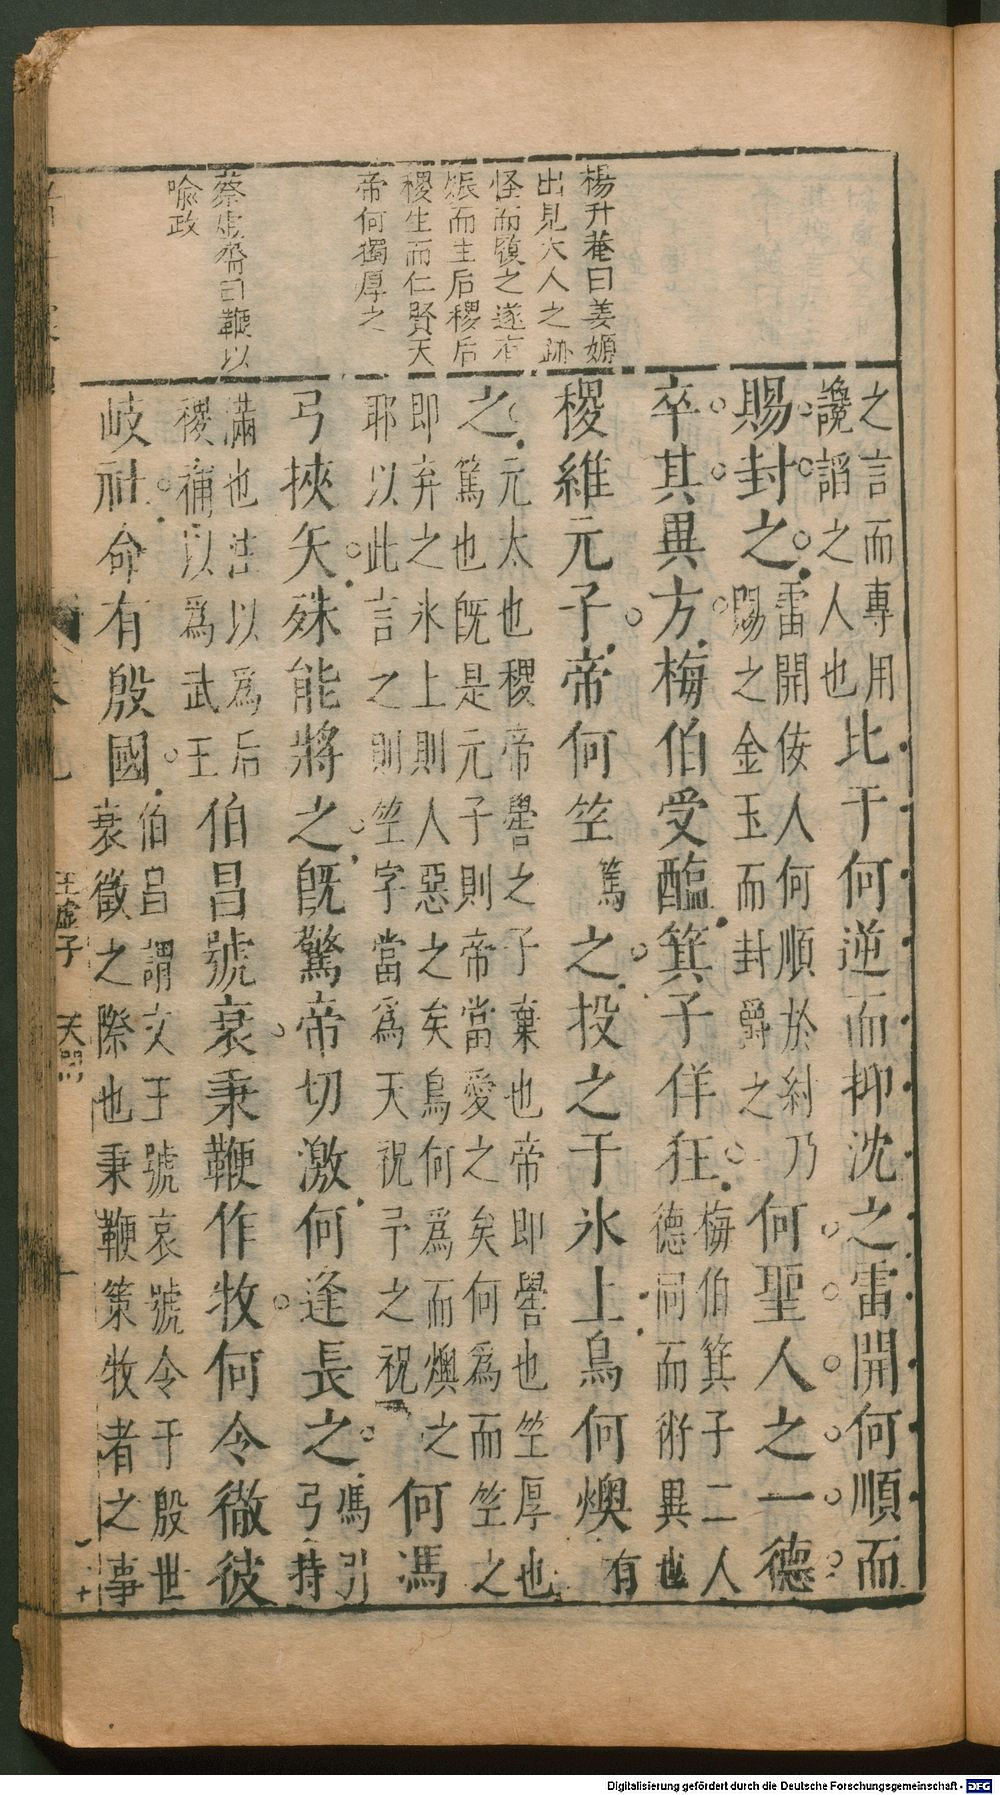 楊升菴曰姜嫄
出見大人之跡
怪而履之遂有
娠而生后稷后
稷生而仁賢天
帝何獨厚之
蔡虛齋曰鞭以
喻政
之言而專用
讒謟之人也
比干何逆而抑沈之雷開何順而
賜封之
雷開佞人何順於紂乃
賜之金玉而封爵之
何聖人之一德
卒其異方梅伯受醢箕子佯狂
梅伯箕子二人
德同而術異也
稷維元子帝何竺篤之投之于氷上鳥何燠有
之
元太也稷帝嚳之子棄也帝即嚳也竺厚也
篤也旣是元子則帝當愛之矣何爲而竺之
即弃之氷上則人惡之矣鳥何爲而燠之
耶以此言之則竺字當爲天祝予之祝
何馮
弓挾矢殊能將之旣驚帝切激何逢長之
馮引
弓持
滿也注以爲后
稷補以爲武王
伯昌號衰秉鞭作牧何令徹彼
岐社命有殷國
伯昌謂文王號哀號令于殷世
衰微之際也秉鞭策牧者之事
玉虛子
天問
Digitalisierung gefördert durch die Deutsche Forschungsgemeinschaft - DFG